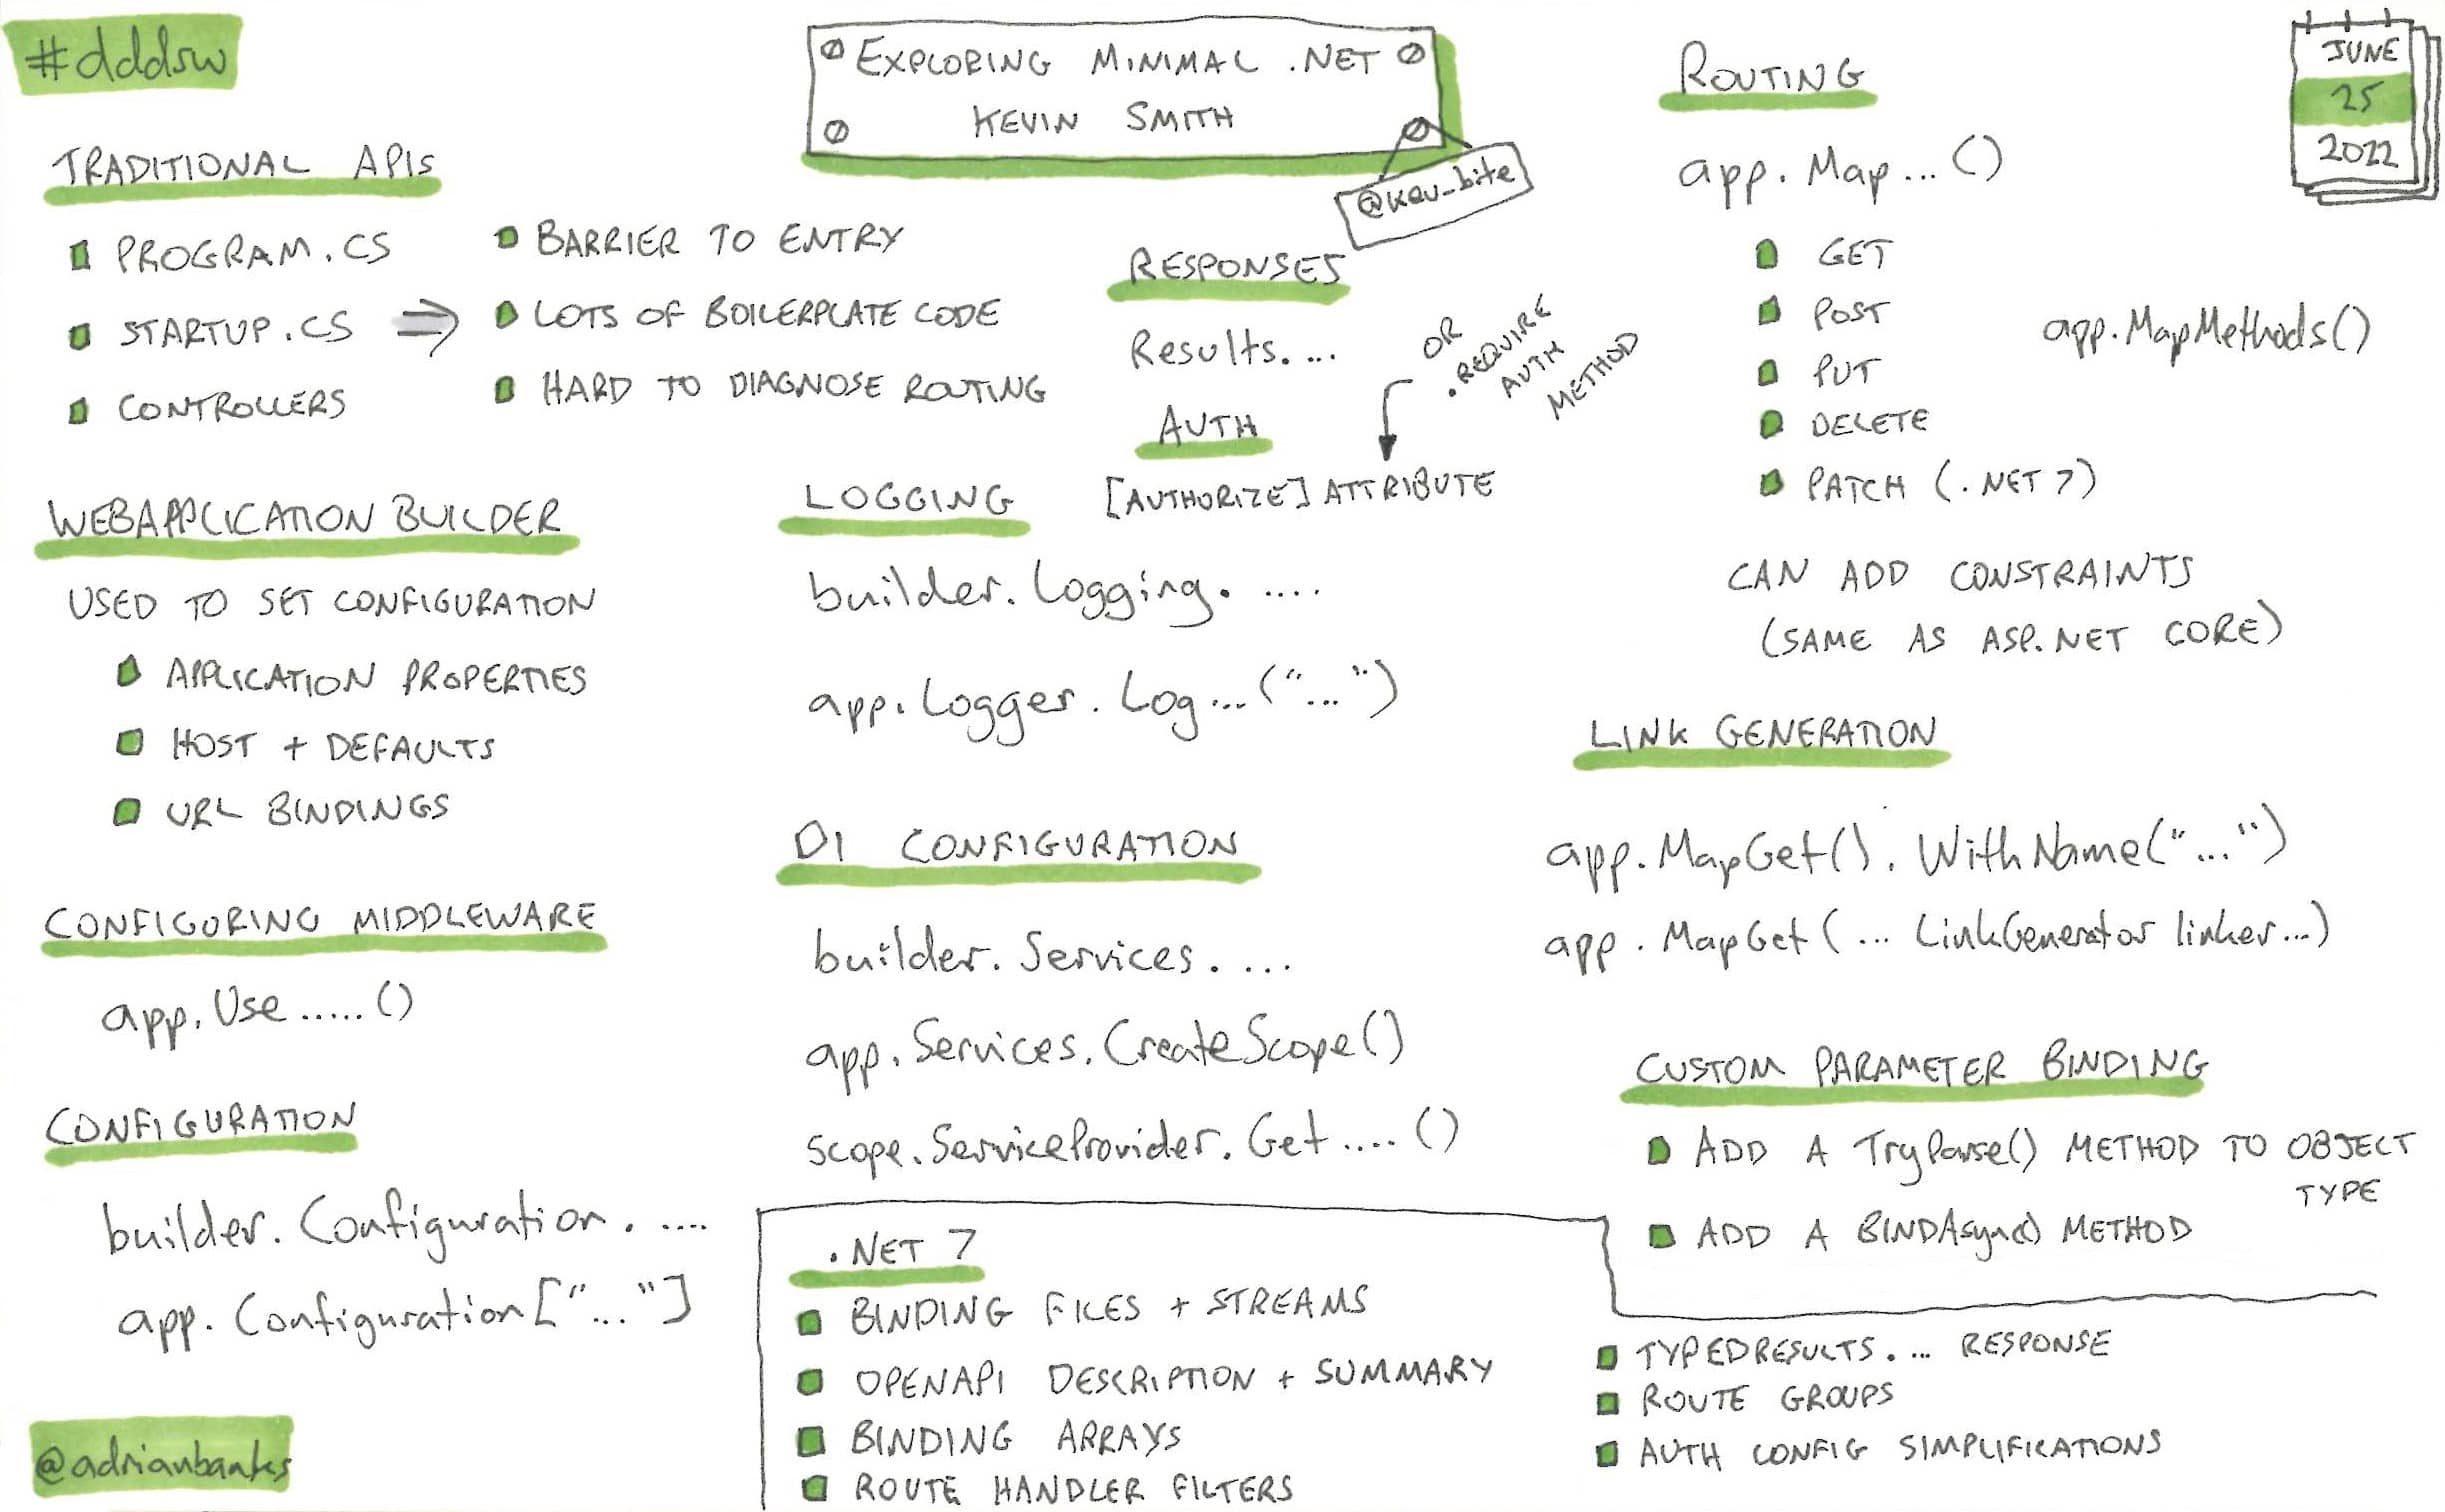 #dddsw
EXPLORING MINIMAL .NET
KEVIN SMITH
@kev_bite
JUNE
25
2022
TRADITIONAL APIs
PROGRAM.CS
STARTUP.CS
CONTROLLERS
BARRIER TO ENTRY
LOTS OF BOILERPLATE CODE
HARD TO DIAGNOSE ROUTING
WEBAPPLICATION BUILDER
USED TO SET CONFIGURATION
APPLICATION PROPERTIES
HOST + DEFAULTS
URL BINDINGS
CONFIGURING MIDDLEWARE
app.Use.....()
CONFIGURATION
builder.Configuration. ....
app.Configuration["..."]
@adrianbanks
RESPONSES
Results. ...
AUTH
[AUTHORIZE] ATTRIBUTE
OR
.REQUIRE
AUTH
METHOD
LOGGING
builder.Logging. ....
app.Logger.Log...("...")
DI CONFIGURATION
builder.Services. ...
app.Services.CreateScope()
scope.ServiceProvider.Get....()
ROUTING
app.Map...()
GET
POST
PUT
DELETE
PATCH (.NET 7)
app.MapMethods()
CAN ADD CONSTRAINTS
(SAME AS ASP.NET CORE)
LINK GENERATION
app.MapGet().WithName("...")
app.MapGet(... LinkGenerator linker...)
CUSTOM PARAMETER BINDING
ADD A TryParse() METHOD TO OBJECT
TYPE
ADD A BINDAsync() METHOD
.NET 7
BINDING FILES + STREAMS
OPENAPI DESCRIPTION + SUMMARY
BINDING ARRAYS
ROUTE HANDLER FILTERS
TYPEDRESULTS. ... RESPONSE
ROUTE GROUPS
AUTH CONFIG SIMPLIFICATIONS